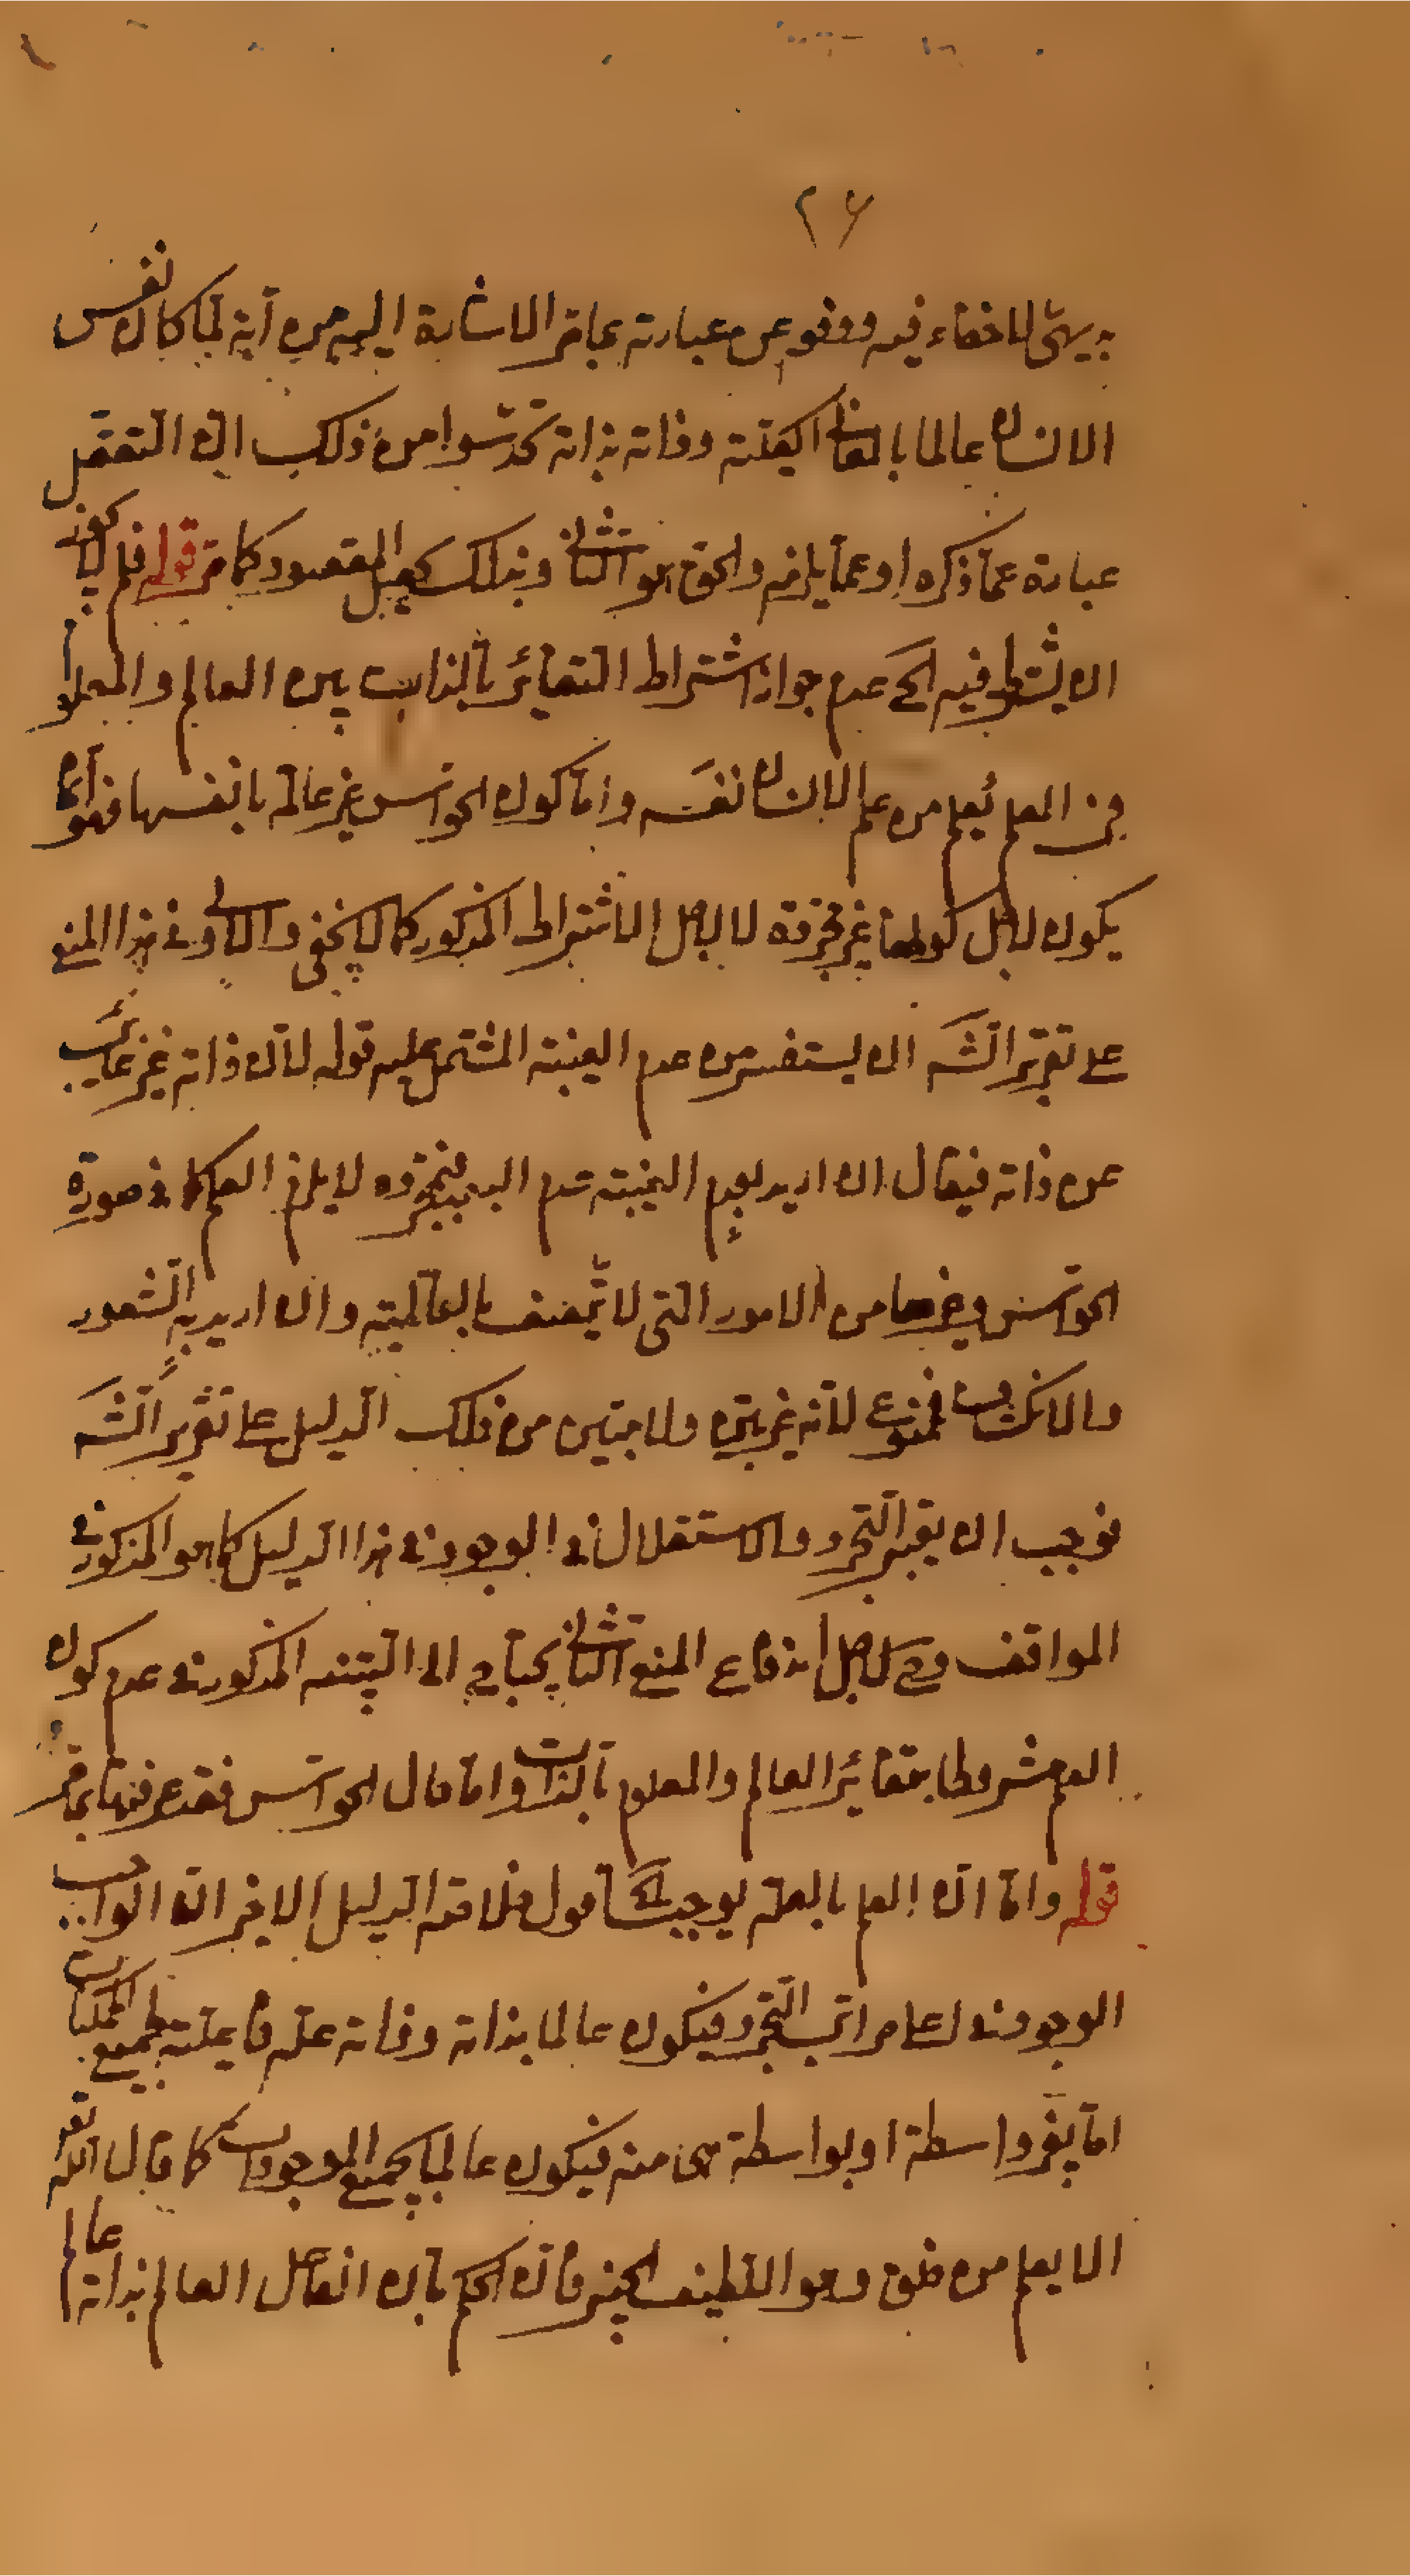 ٢٦
بديهى لا خفاء فيه وهو عن عبارته بما مر الاشارة اليه من انه لما كان نفس
الانسان عالما بالمعانى الكلية وذاته بذاته حدسوا من ذلك ان التعقل
عبارة عما ذكره او عما يلزمه والحق هو الثانى وبذلك يحصل المقصود كما مر قوله فلم لا يجوز
ان يشترط فيه الخ عدم جواز اشتراط التغاير بالذات بين العالم والمعلوم
فى العلم يُعلم من علم الانسان نفسه واما كون الحواس غير عالمة بانفسها فهو اما ان
يكون لاجل كونها غير مجردة لا لاجل الاشتراط المذكور كما لا يخفى والاولى فى هذا المنع
على تقرير الشه ان يستفسر من عدم الغيبة المشتمل عليه قوله لان ذاته غير غائب
عن ذاته فيقال ان اريد بعدم الغيبة عدم البعد فبمجرده لا يلزم العلم كما فى صورة
الحواس وغيرها من الامور التى لا تتصف بالعالمية وان اريد به الشعور
والانكشاف فممنوع لانه غير بين ولا مبين من ذلك الدليل على تقرير الشه
فوجب ان يعتبر التجرد والاستقلال فى الوجود فى هذا الدليل كما هو المذكور فى
المواقف ولاجل اندفاع المنع الثانى يحتاج الى البينة المذكورة فى عدم كون
العلم مشروطا بتغاير العالم والمعلوم بالذات واما حال الحواس فقد عرفتها بما مر
قوله واما ان العلم بالعلة يوجب الخ اقول خلاصة الدليل الاخير ان الواجب
الوجود فى اعلى مراتب التجرد فيكون عالما بذاته وذاته علة فاعلية لجميع الممكنات
اما بغير واسطة او بواسطة هى منه فيكون عالما بجميع الموجودات كما قال الله تعالى
الا يعلم من خلق وهو اللطيف الخبير فان الحكم بان الفاعل العالم بذاته عالم